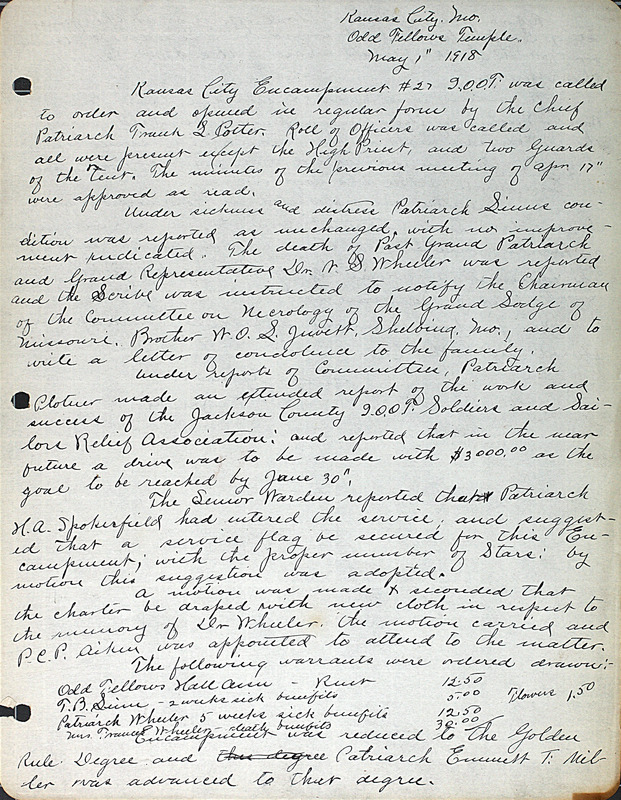 Kansas City, Mo.
Odd Fellows Temple.
May 1" 1918
Kansas City Encampment #27 I.O.O.F. was called
to order and opened in regular form by the Chief
Patriarch Frank L Potter. Roll of Officers was called and
all were present except the High Priest, and two Guards
of the Tent. The minutes of the previous meeting of Apr 17"
were approved as read.
Under sickness and distress Patriarch Sinns con-
dition was reported as unchanged, with no improve-
ment indicated. The death of Past Grand Patriarch
and Grand Representative Dr. W. S Wheeler was reported
and the Scribe was instructed to notify the Chairman
of the Committee on Necrology of the Grand Lodge of
Missouri, Brother W. O. L. Jewett, Shelbina, Mo., and to
write a letter of condolence to the family.
Under reports of Committees, Patriarch
Plotner made an extended report of the work and
success of the Jackson County I.O.O.F. Soldiers and Sai-
lors Relief Association: and reported that in the near
future a drive was to be made with $3000.00 as the
goal to be reached by June 30".
The Senior Warden reported that Patriarch
H.A. Spokerfield had entered the service, and suggest-
ed that a service flag be secured for this En-
campment; with the proper number of Stars: by
motion this suggestion was adopted.
A motion was made & seconded that
the charter be draped with new cloth in respect to
the memory of Dr Wheeler. the motion carried and
P.C.P. Aiken was appointed to attend to the matter.
The following warrants were ordered drawn:-
Odd Fellows Hall Assn - Rent 12.50
T.B. Sinn - 2 weeks sick benefits 5.00 Flowers 1.50
Patriarch Wheeler 5 weeks sick benefits 12.50
Mrs. Frances Wheeler - death benefits 30.00
Encampment was reduced to the Golden
Rule Degree and this degree Patriarch Emmett T. Mil-
ler was advanced to that degree.